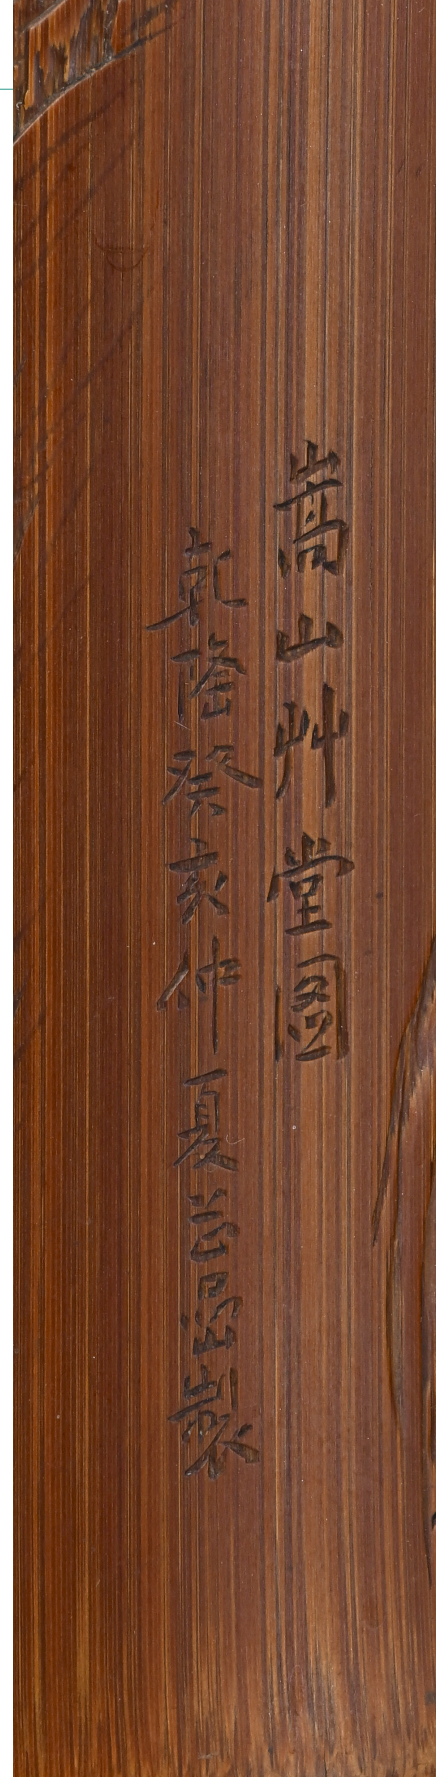 嵩山艸堂图
乾隆癸亥仲夏芷嵒製